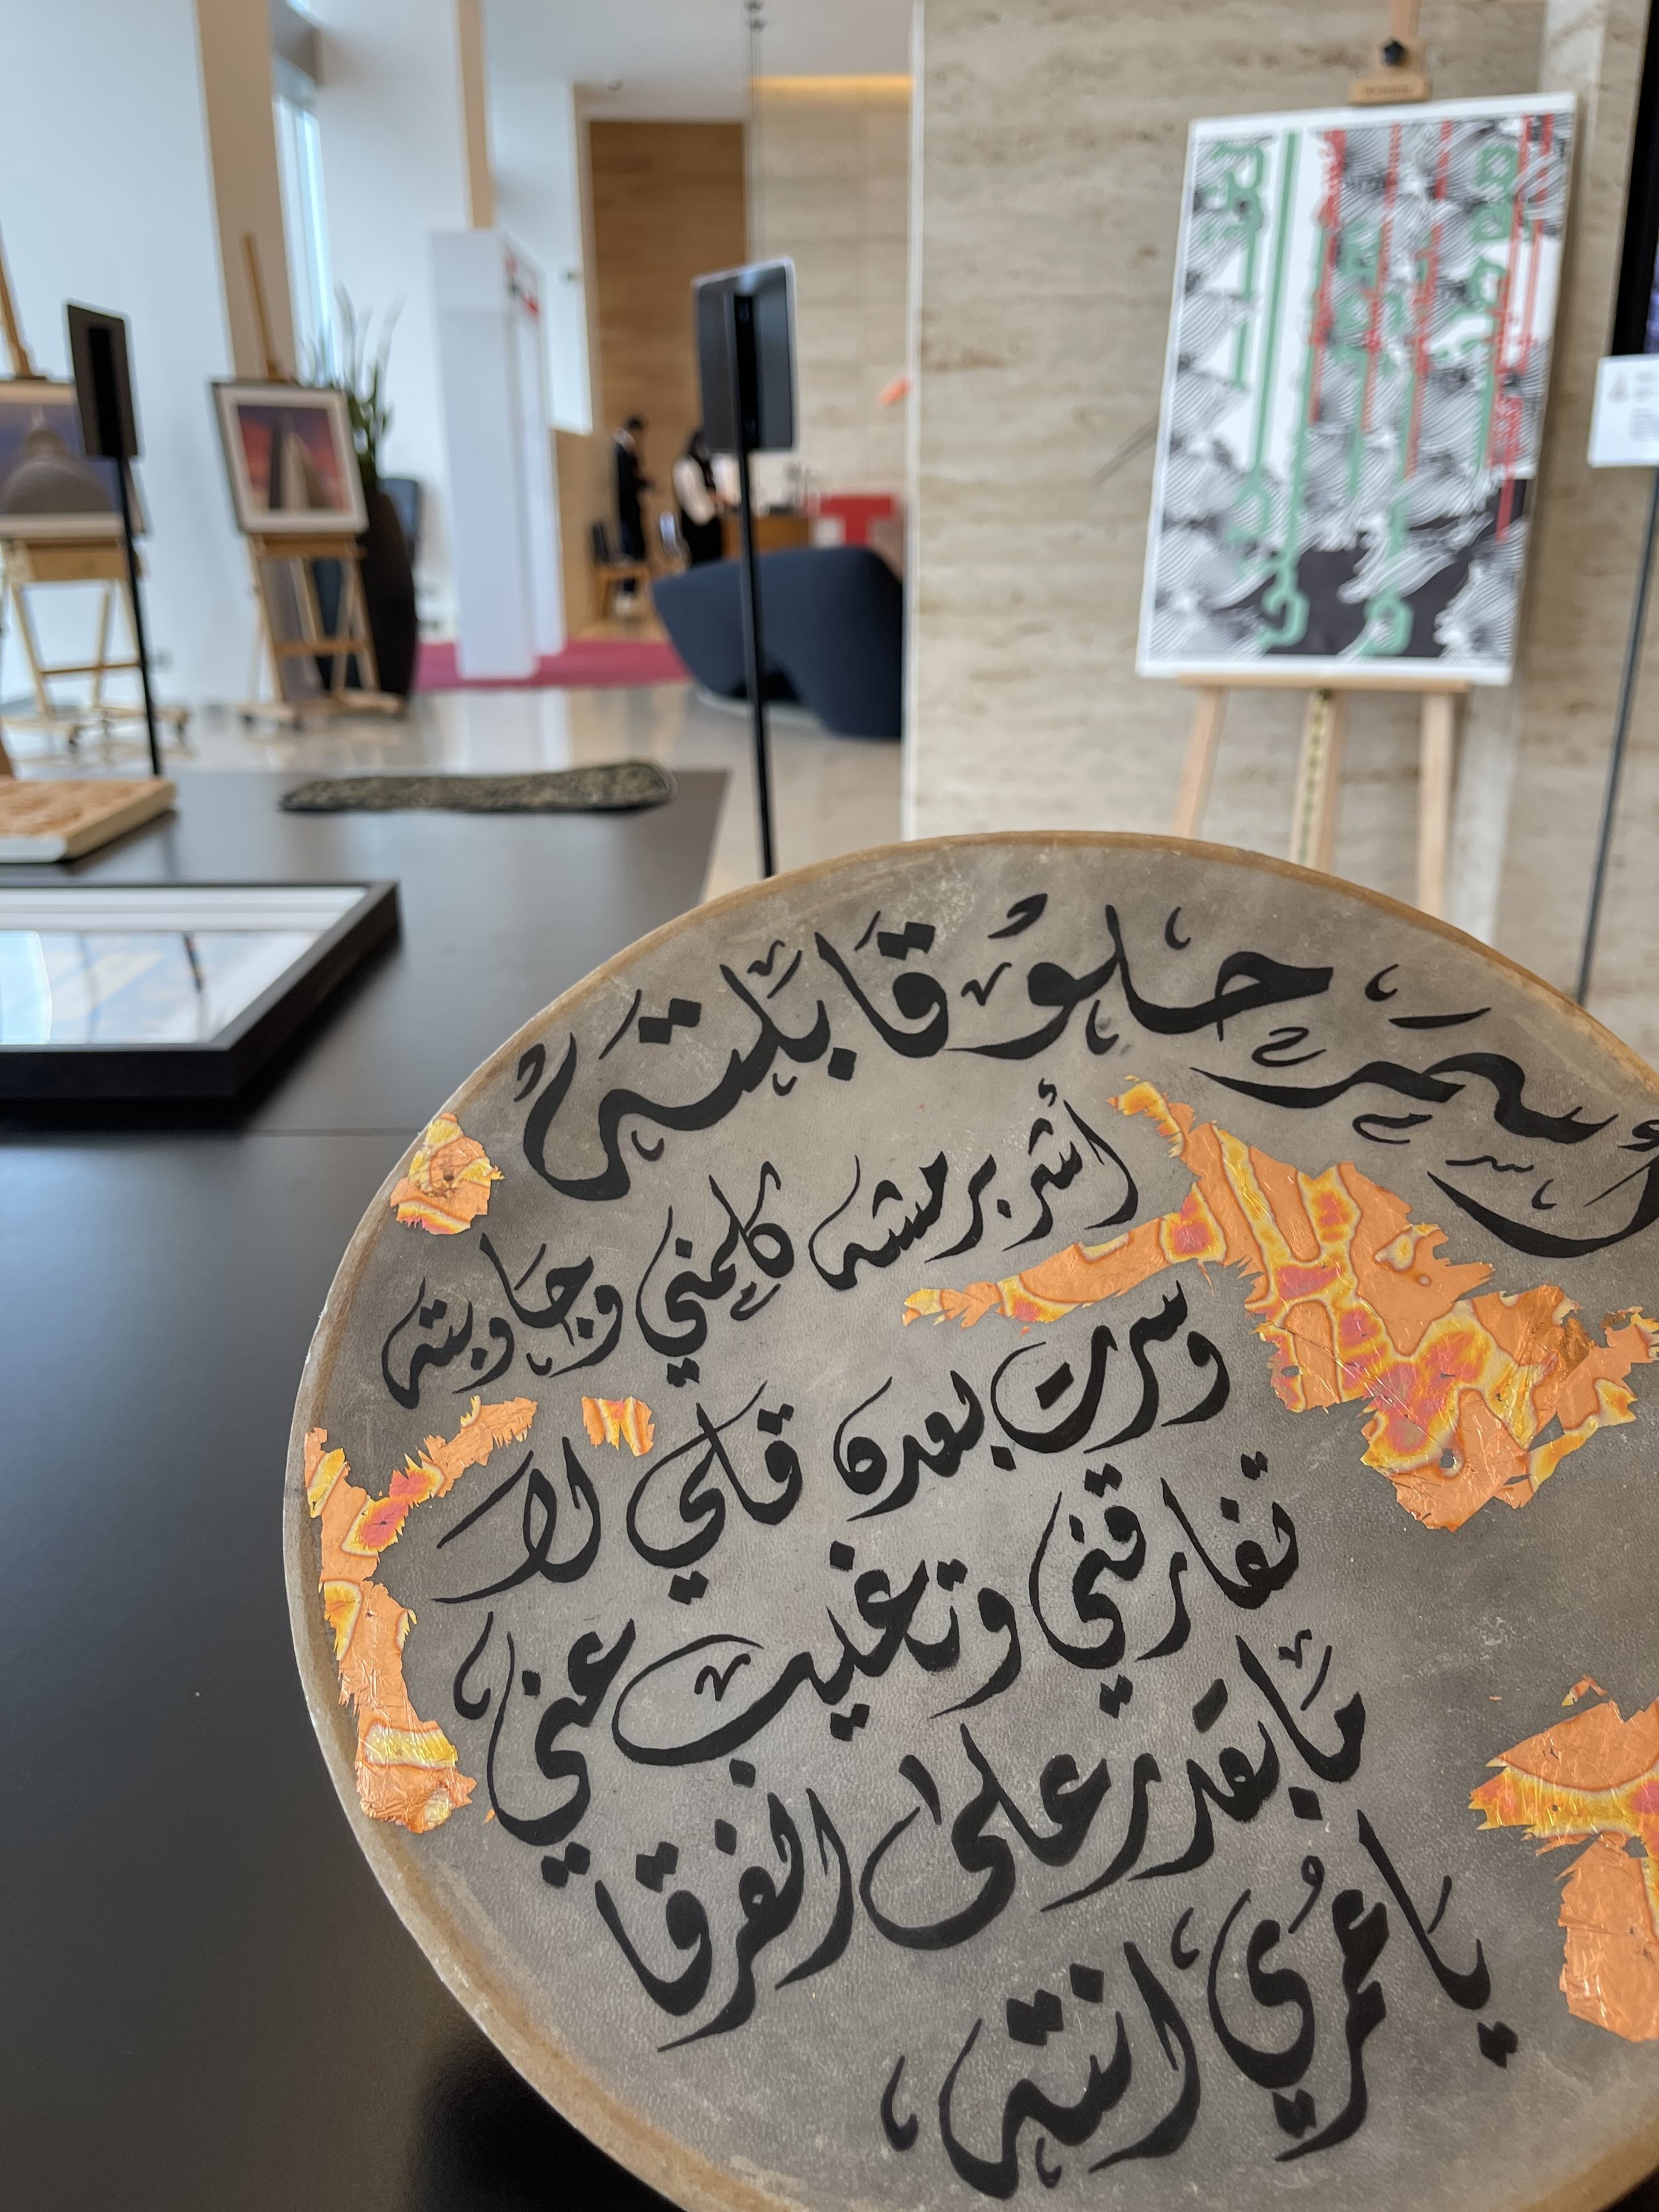 أسمر حلو قابلته
أشر برمشه كلمني وجاوبته
وسرت بعده قلي لا
تفارقني وتغيب عني
مابقدر على الفرقا
يا عمري انته